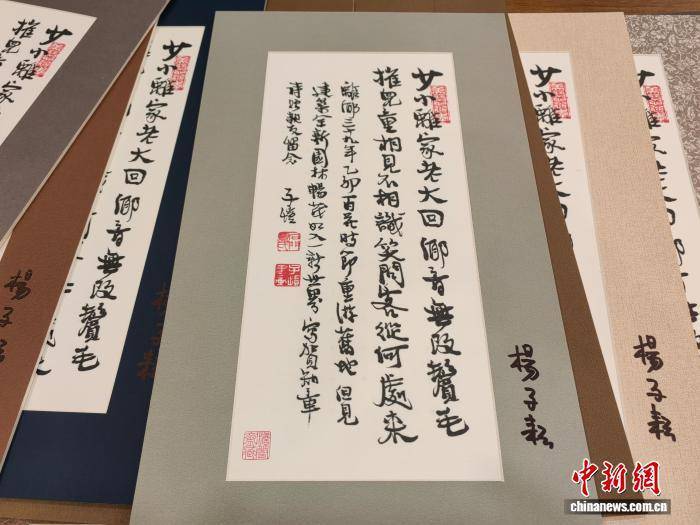 少小離家老大回鄉音無改鬢毛
摧兒童相見不相識笑問客從何處来
離鄉三十九年乙卯百花時節重游舊地但見
建築全新園林暢茂如入新世界寫賀知章
詩以親友留念
子
楊子耘
少小離家老大回鄉音無改鬢毛
楊子耘
少小離家
楊子
少小離家老大
楊子耘
少小離家老
中新网
chinanews.com